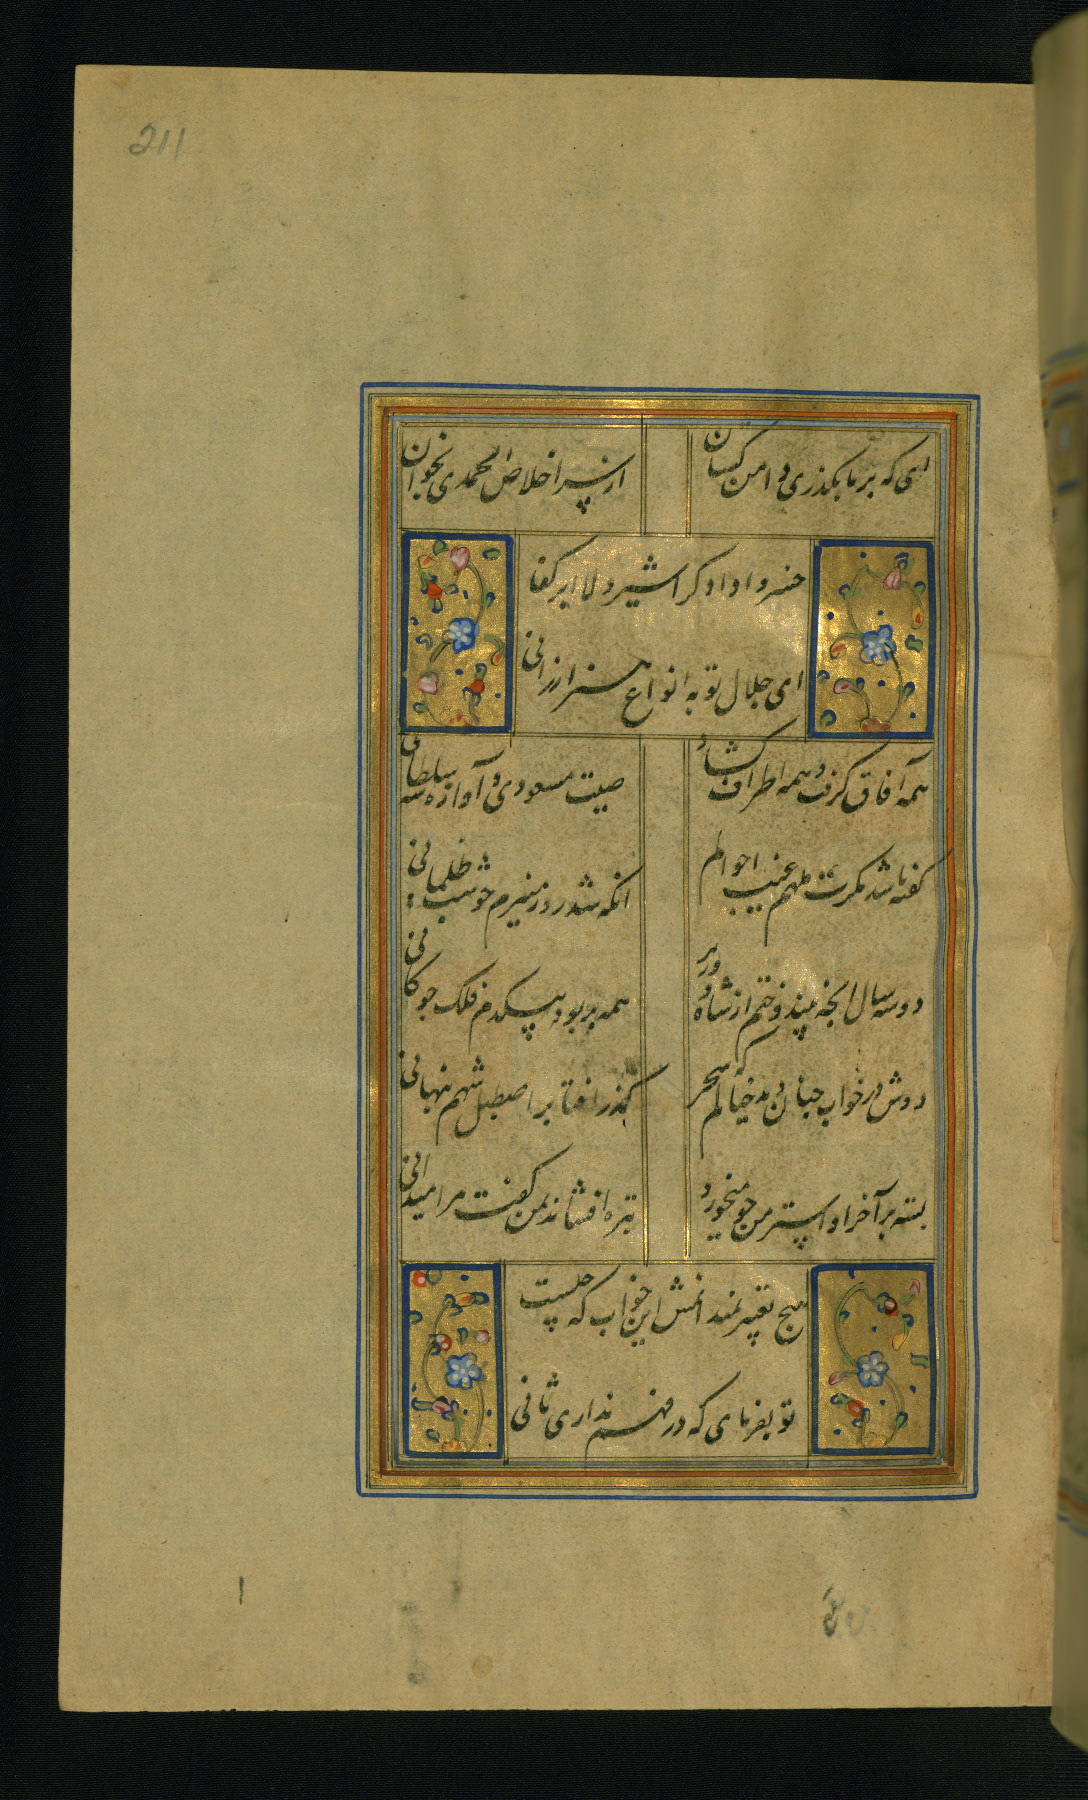 211
ای که بر ما بگذری دامن کشان
از سر اخلاص الحمدی بخوان
خسروا دادگرا شیردلا ابر کفا
ای جلال تو به انواع هنر ارزانی
همه آفاق گرفت و همه اطراف گشاد
صیت مسعودی و آوازه شه سلطانی
گفته باشد مگرت ملهم غیب احوالم
انکه شد روز منیرم چو شب ظلمانی
دو سه سال انچه بیندوختم از شاه و وزیر
همه بربود بیکدم فلک چوگانی
دوش در خواب چنان دید خیالم که سحر
گذر افتاد بر اصطبل شهم پنهانی
بسته بر آخر او استر من جو میخورد
تبره افشاند بمن گفت مرا میدانی
هیچ تعبیر نمیدانمش این خواب که چیست
تو بفرمای که در فهم نداری ثانی